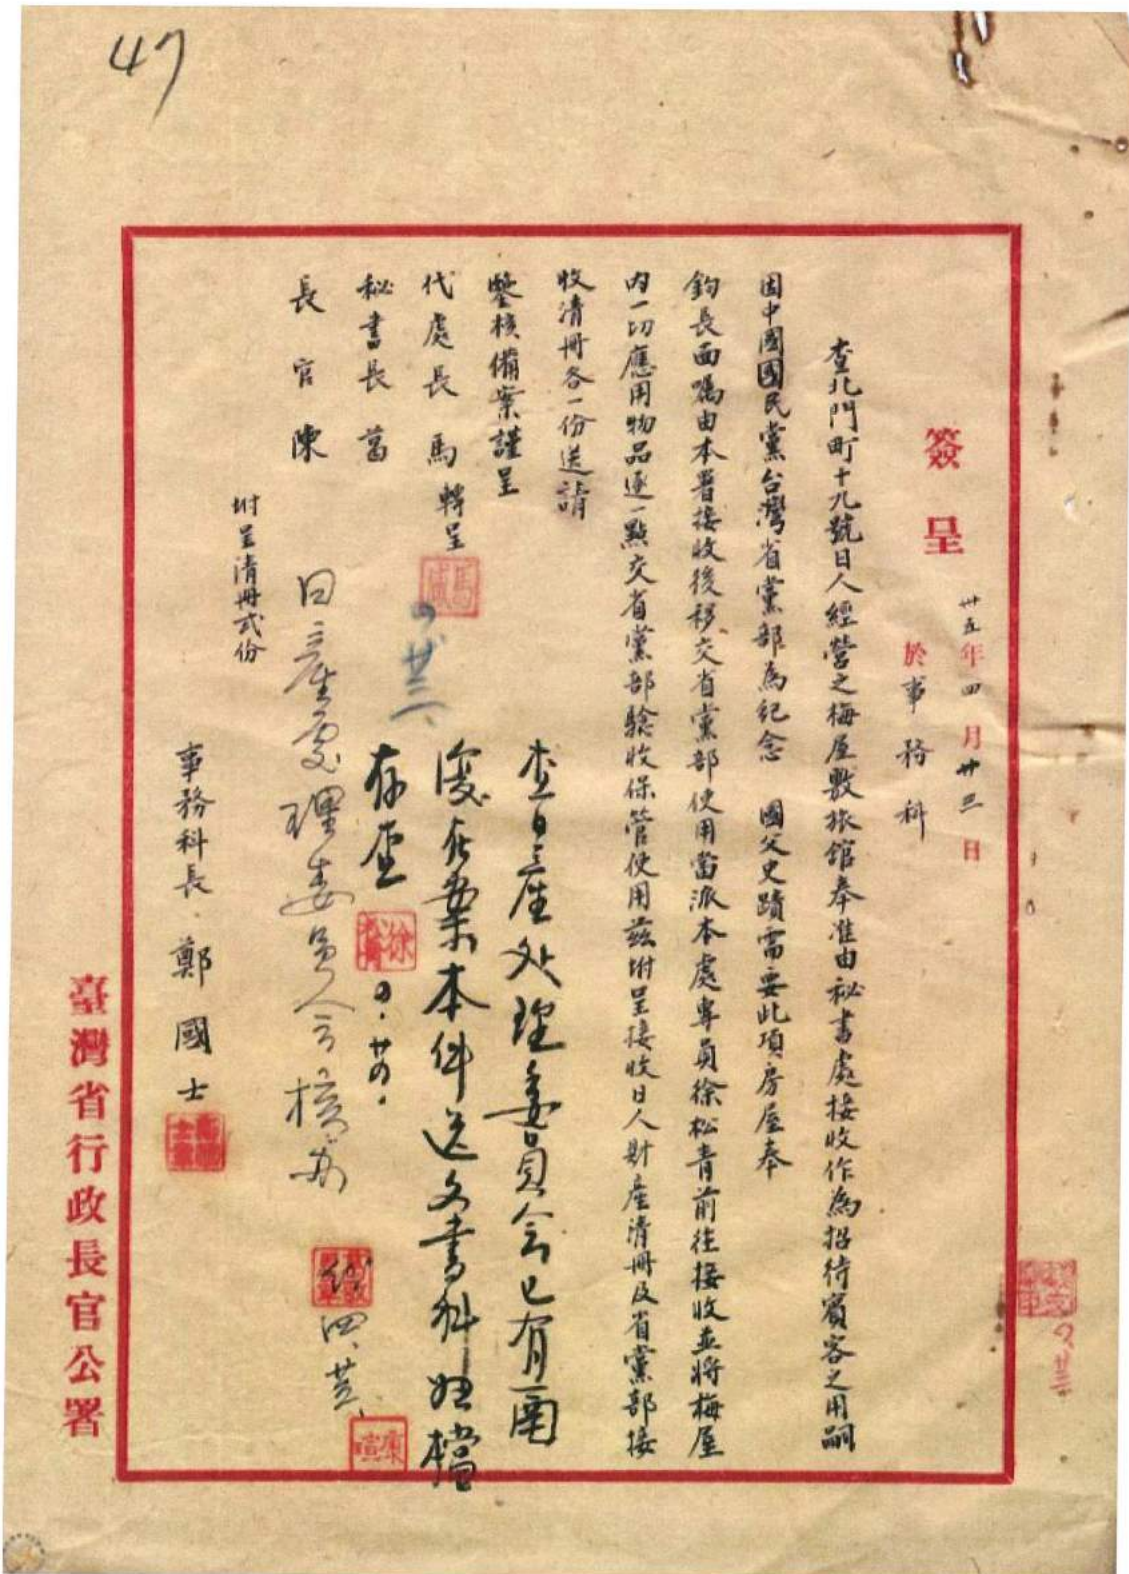 47
簽呈
卅五年四月廿三日
於事務科
查北門町十九號日人經營之梅屋敷旅館奉准由秘書處接收作為招待賓客之用嗣
因中國國民黨台灣省黨部為紀念 國父史蹟需要此項房屋奉
鈞長面囑由本署接收後移交省黨部使用當派本處專員徐松青前往接收並將梅屋
內一切應用物品逐一點交省黨部驗收保管使用茲附呈接收日人財產清冊及省黨部接
收清冊各一份送請
鑒核備案謹呈
代處長馬 轉呈
秘書長葛
長官陳
附呈清冊弍份
事務科長 鄭國士
查日產処理委員会已有函
復在案本件送文書科歸檔
存查
日產處理委員会核办
四、廿
臺灣省行政長官公署